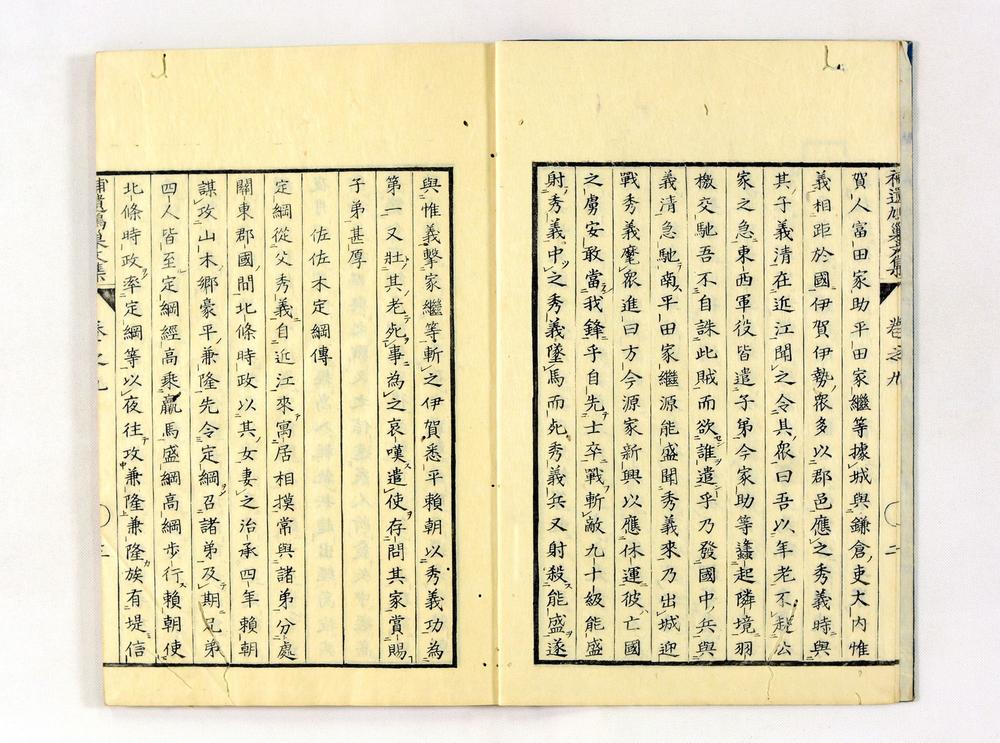 補遺鳩巢文集 卷之九 二
賀人富田家助平田家繼等據城與鎌倉吏大内惟
義相距於國伊賀伊勢衆多以郡邑應之秀義時與
其子義清在近江聞之令其衆曰吾以年老不趨公
家之急東西軍役皆遣子弟今家助等蠭起隣境羽
檄交馳吾不自誅此賊而欲誰遣乎乃發國中兵與
義清急馳南平田家繼源能盛聞秀義來乃出城迎
戰秀義麾衆進曰方今源家新興以應休運彼亡國
之虜安敢當我鋒乎自先士卒戰斬敵九十級能盛
射秀義中之秀義墜馬而死秀義兵又射殺能盛遂
與惟義擊家繼等斬之伊賀悉平賴朝以秀義功為
第一又壯其老死事為之哀嘆遣使存問其家賞賜
子弟甚厚
佐佐木定綱傳
定綱從父秀義自近江來寓居相摸常與諸弟分處
關東郡國間北條時政以其女妻之治承四年賴朝
謀攻山木鄉豪平兼隆先令定綱召諸弟及期兄弟
四人皆至定綱經高乘羸馬盛綱高綱步行賴朝使
北條時政率定綱等以夜往攻兼隆兼隆族有堤信
補遺鳩巢文集 卷之九 三